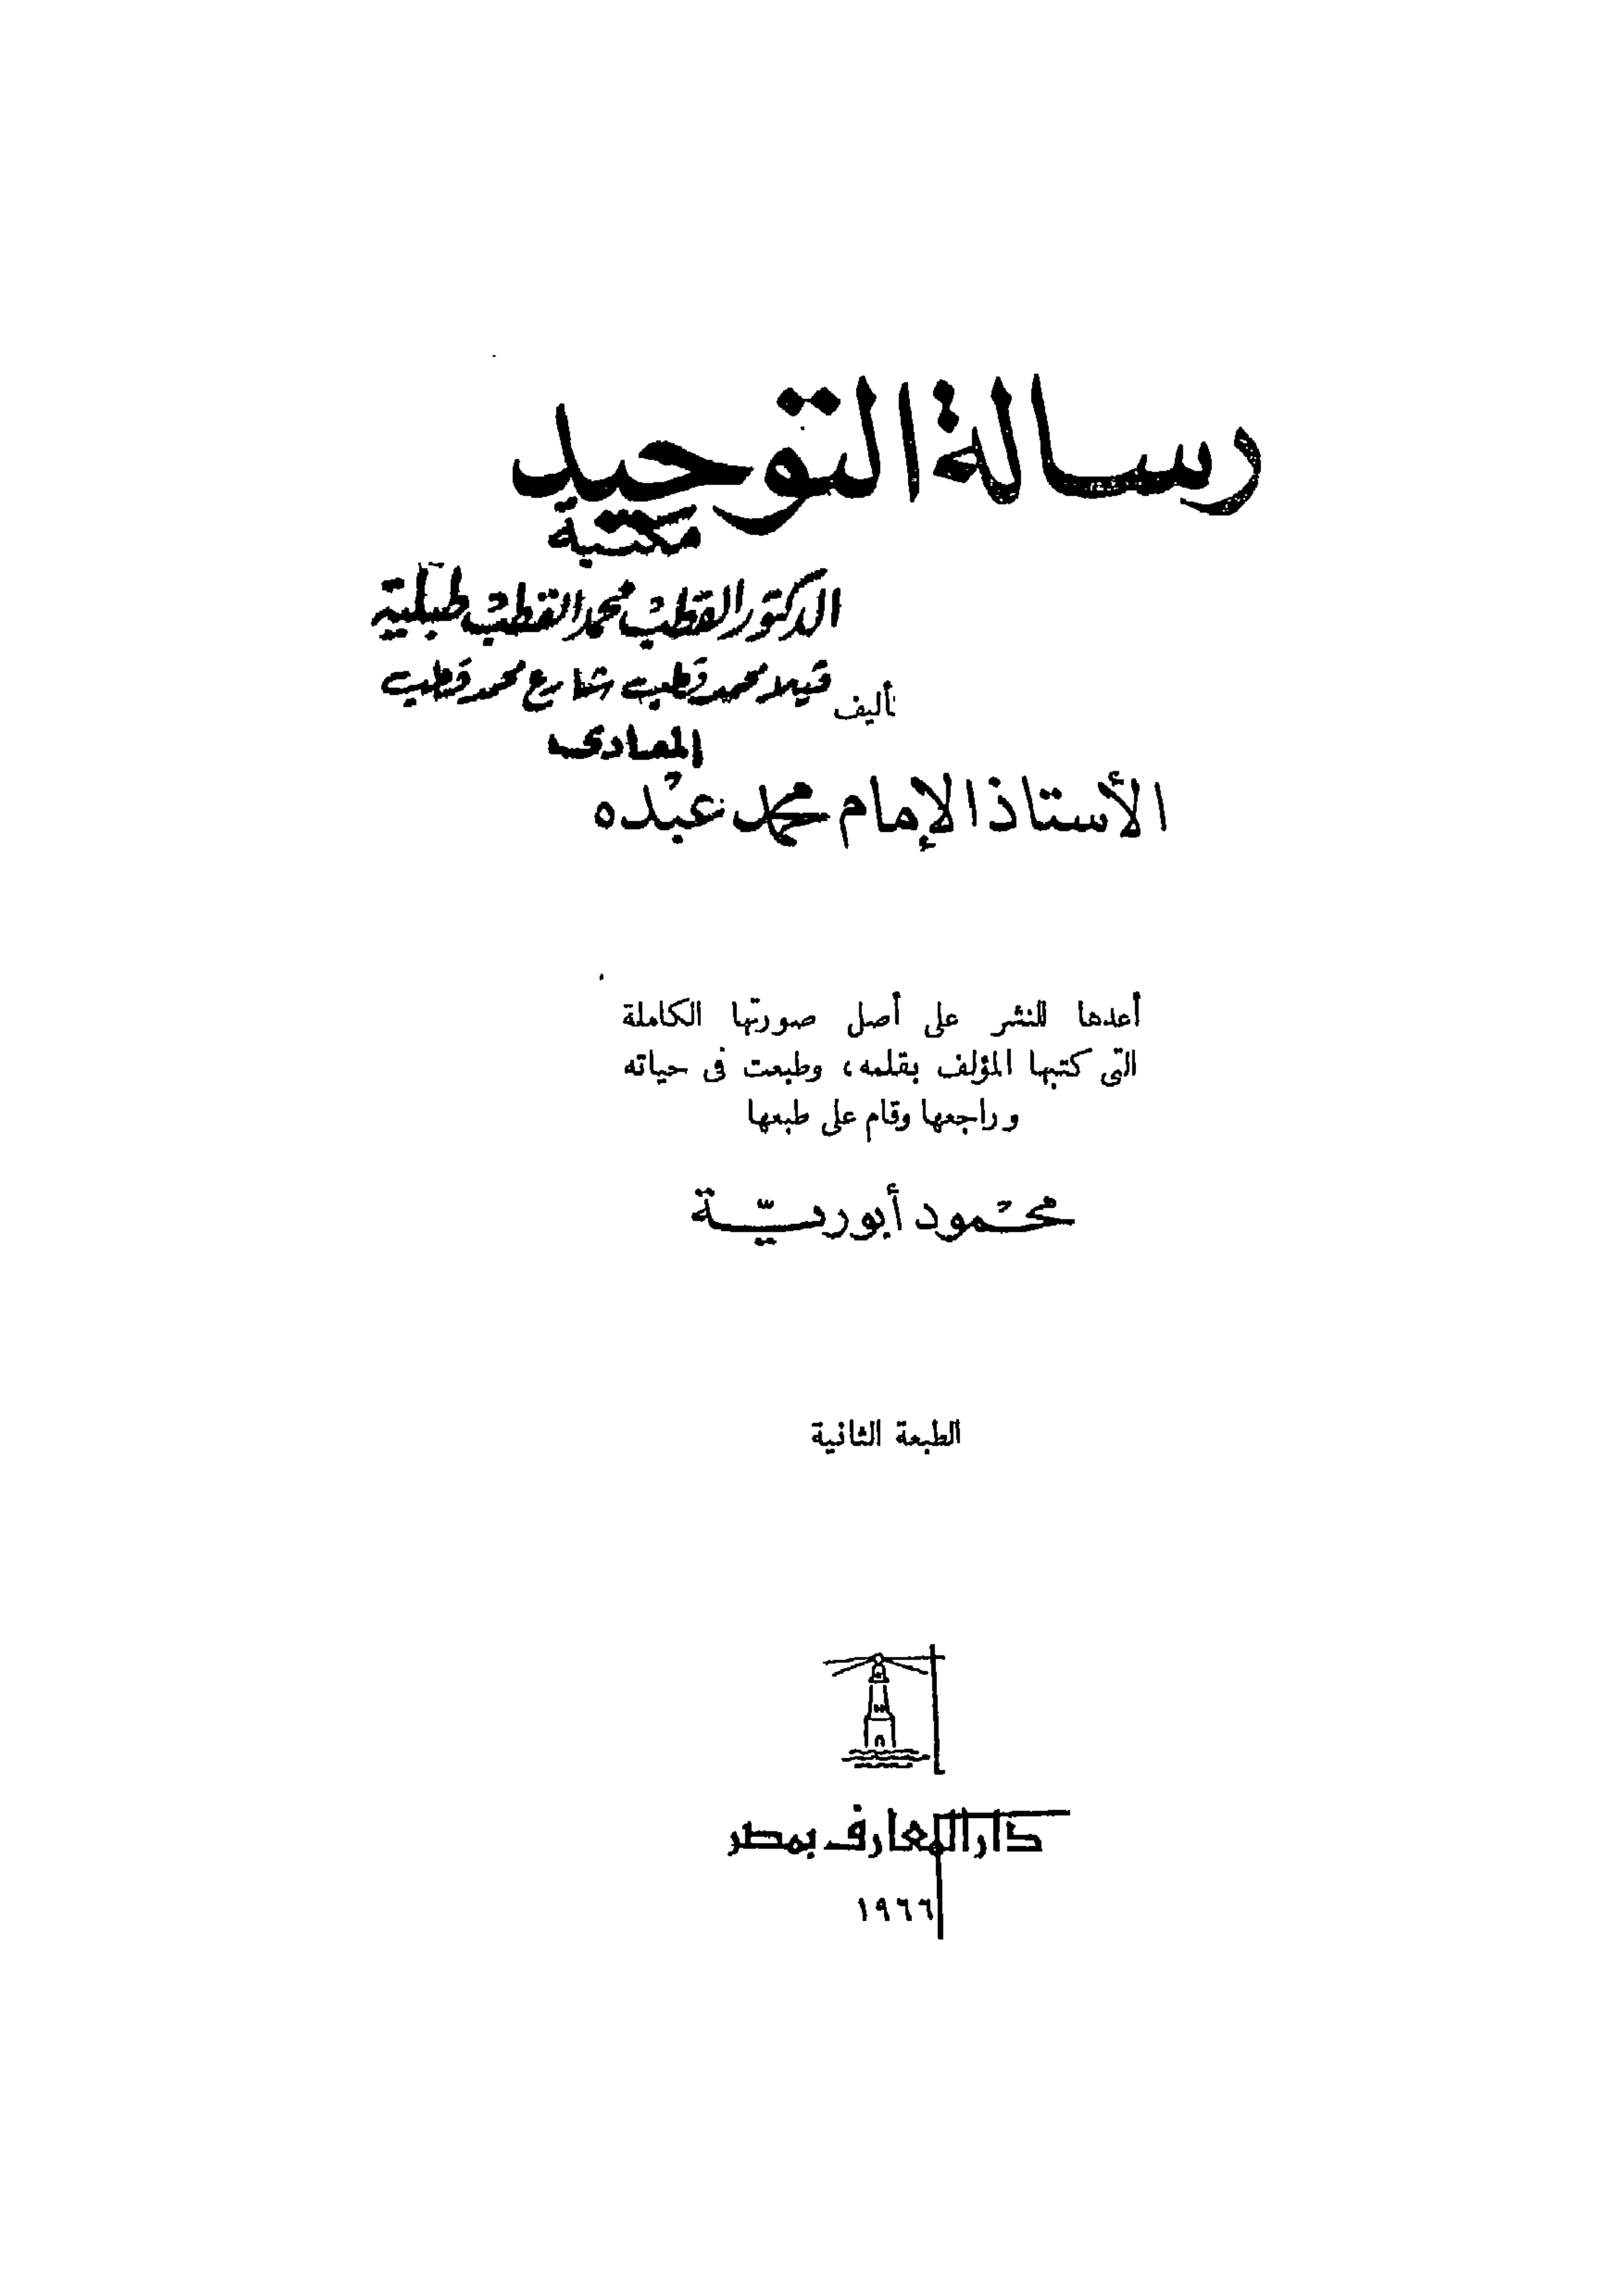 رسالة التوحيد
مكتبة
الدكتور القطب محمد القطب طبلية
ڤيلا محمد قطب شارع محمد قطب
المعادى
تأليف
الأستاذ الإمام محمد عبده
أعدها للنشر على أصل صورتها الكاملة
التى كتبها المؤلف بقلمه، وطبعت فى حياته
وراجعها وقام على طبعها
محمود أبو ريّة
الطبعة الثانية
دار المعارف بمصر
١٩٦٦